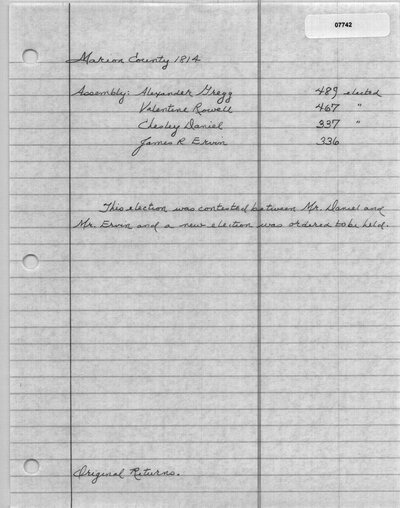 07742
Marion County 1814
Assembly: Alexander Gregg 489 elected
Valentine Rowell 467 "
Chesley Daniel 337 "
James R Ervin 336
This election was contested between Mr. Daniel and
Mr. Ervin and a new election was ordered to be held.
Original Returns.